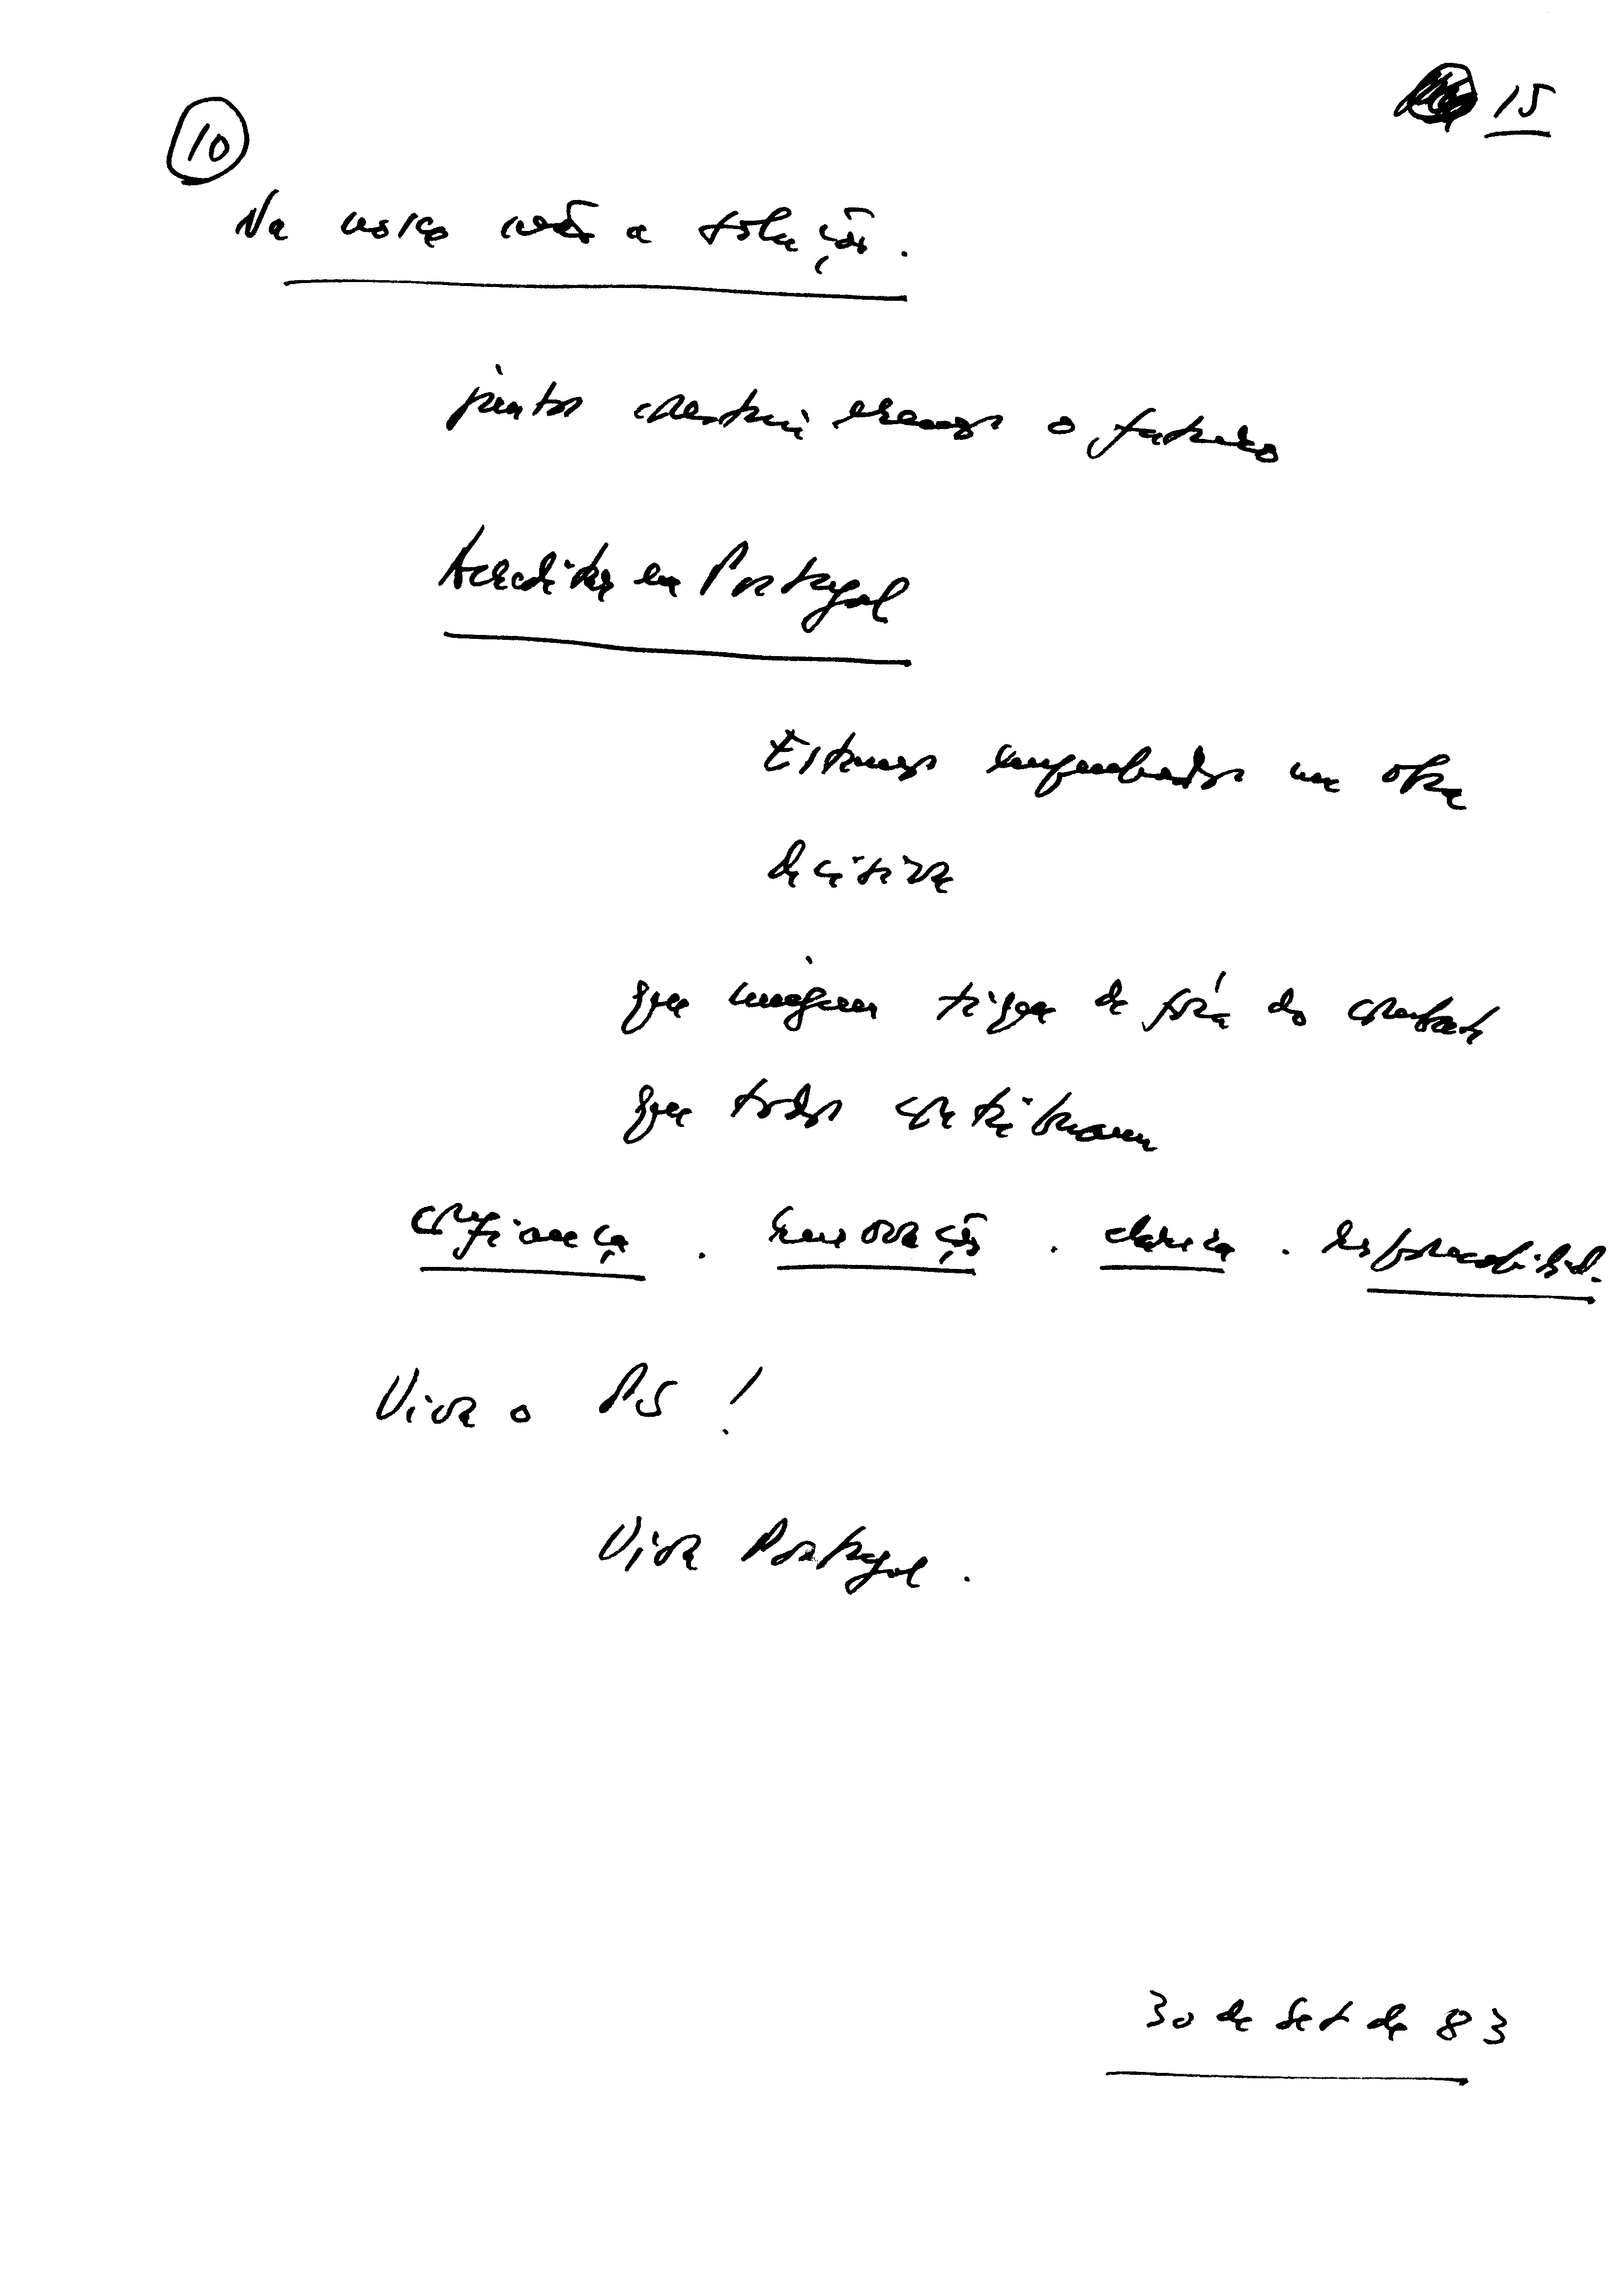 15
10
Na nossa mão a solução.
juntos construiremos o futuro
Acreditar em Portugal
Estamos empenhados na obra
decisiva
que ninguém fique de fora do combate
que todos contribuam
confiança . renovação . clareza . responsabilid.
Viva o PS !
Viva Portugal .
30 de Set de 83